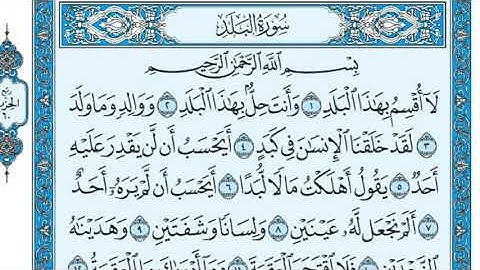 سُورَةُ البَلَدِ
بِسْمِ اللَّهِ الرَّحْمَٰنِ الرَّحِيمِ
لَا أُقْسِمُ بِهَٰذَا الْبَلَدِ ١ وَأَنتَ حِلٌّ بِهَٰذَا الْبَلَدِ ٢ وَوَالِدٍ وَمَا وَلَدَ
٣ لَقَدْ خَلَقْنَا الْإِنسَانَ فِي كَبَدٍ ٤ أَيَحْسَبُ أَن لَّن يَقْدِرَ عَلَيْهِ
أَحَدٌ ٥ يَقُولُ أَهْلَكْتُ مَالًا لُّبَدًا ٦ أَيَحْسَبُ أَن لَّمْ يَرَهُ أَحَدٌ
٧ أَلَمْ نَجْعَل لَّهُ عَيْنَيْنِ ٨ وَلِسَانًا وَشَفَتَيْنِ ٩ وَهَدَيْنَاهُ